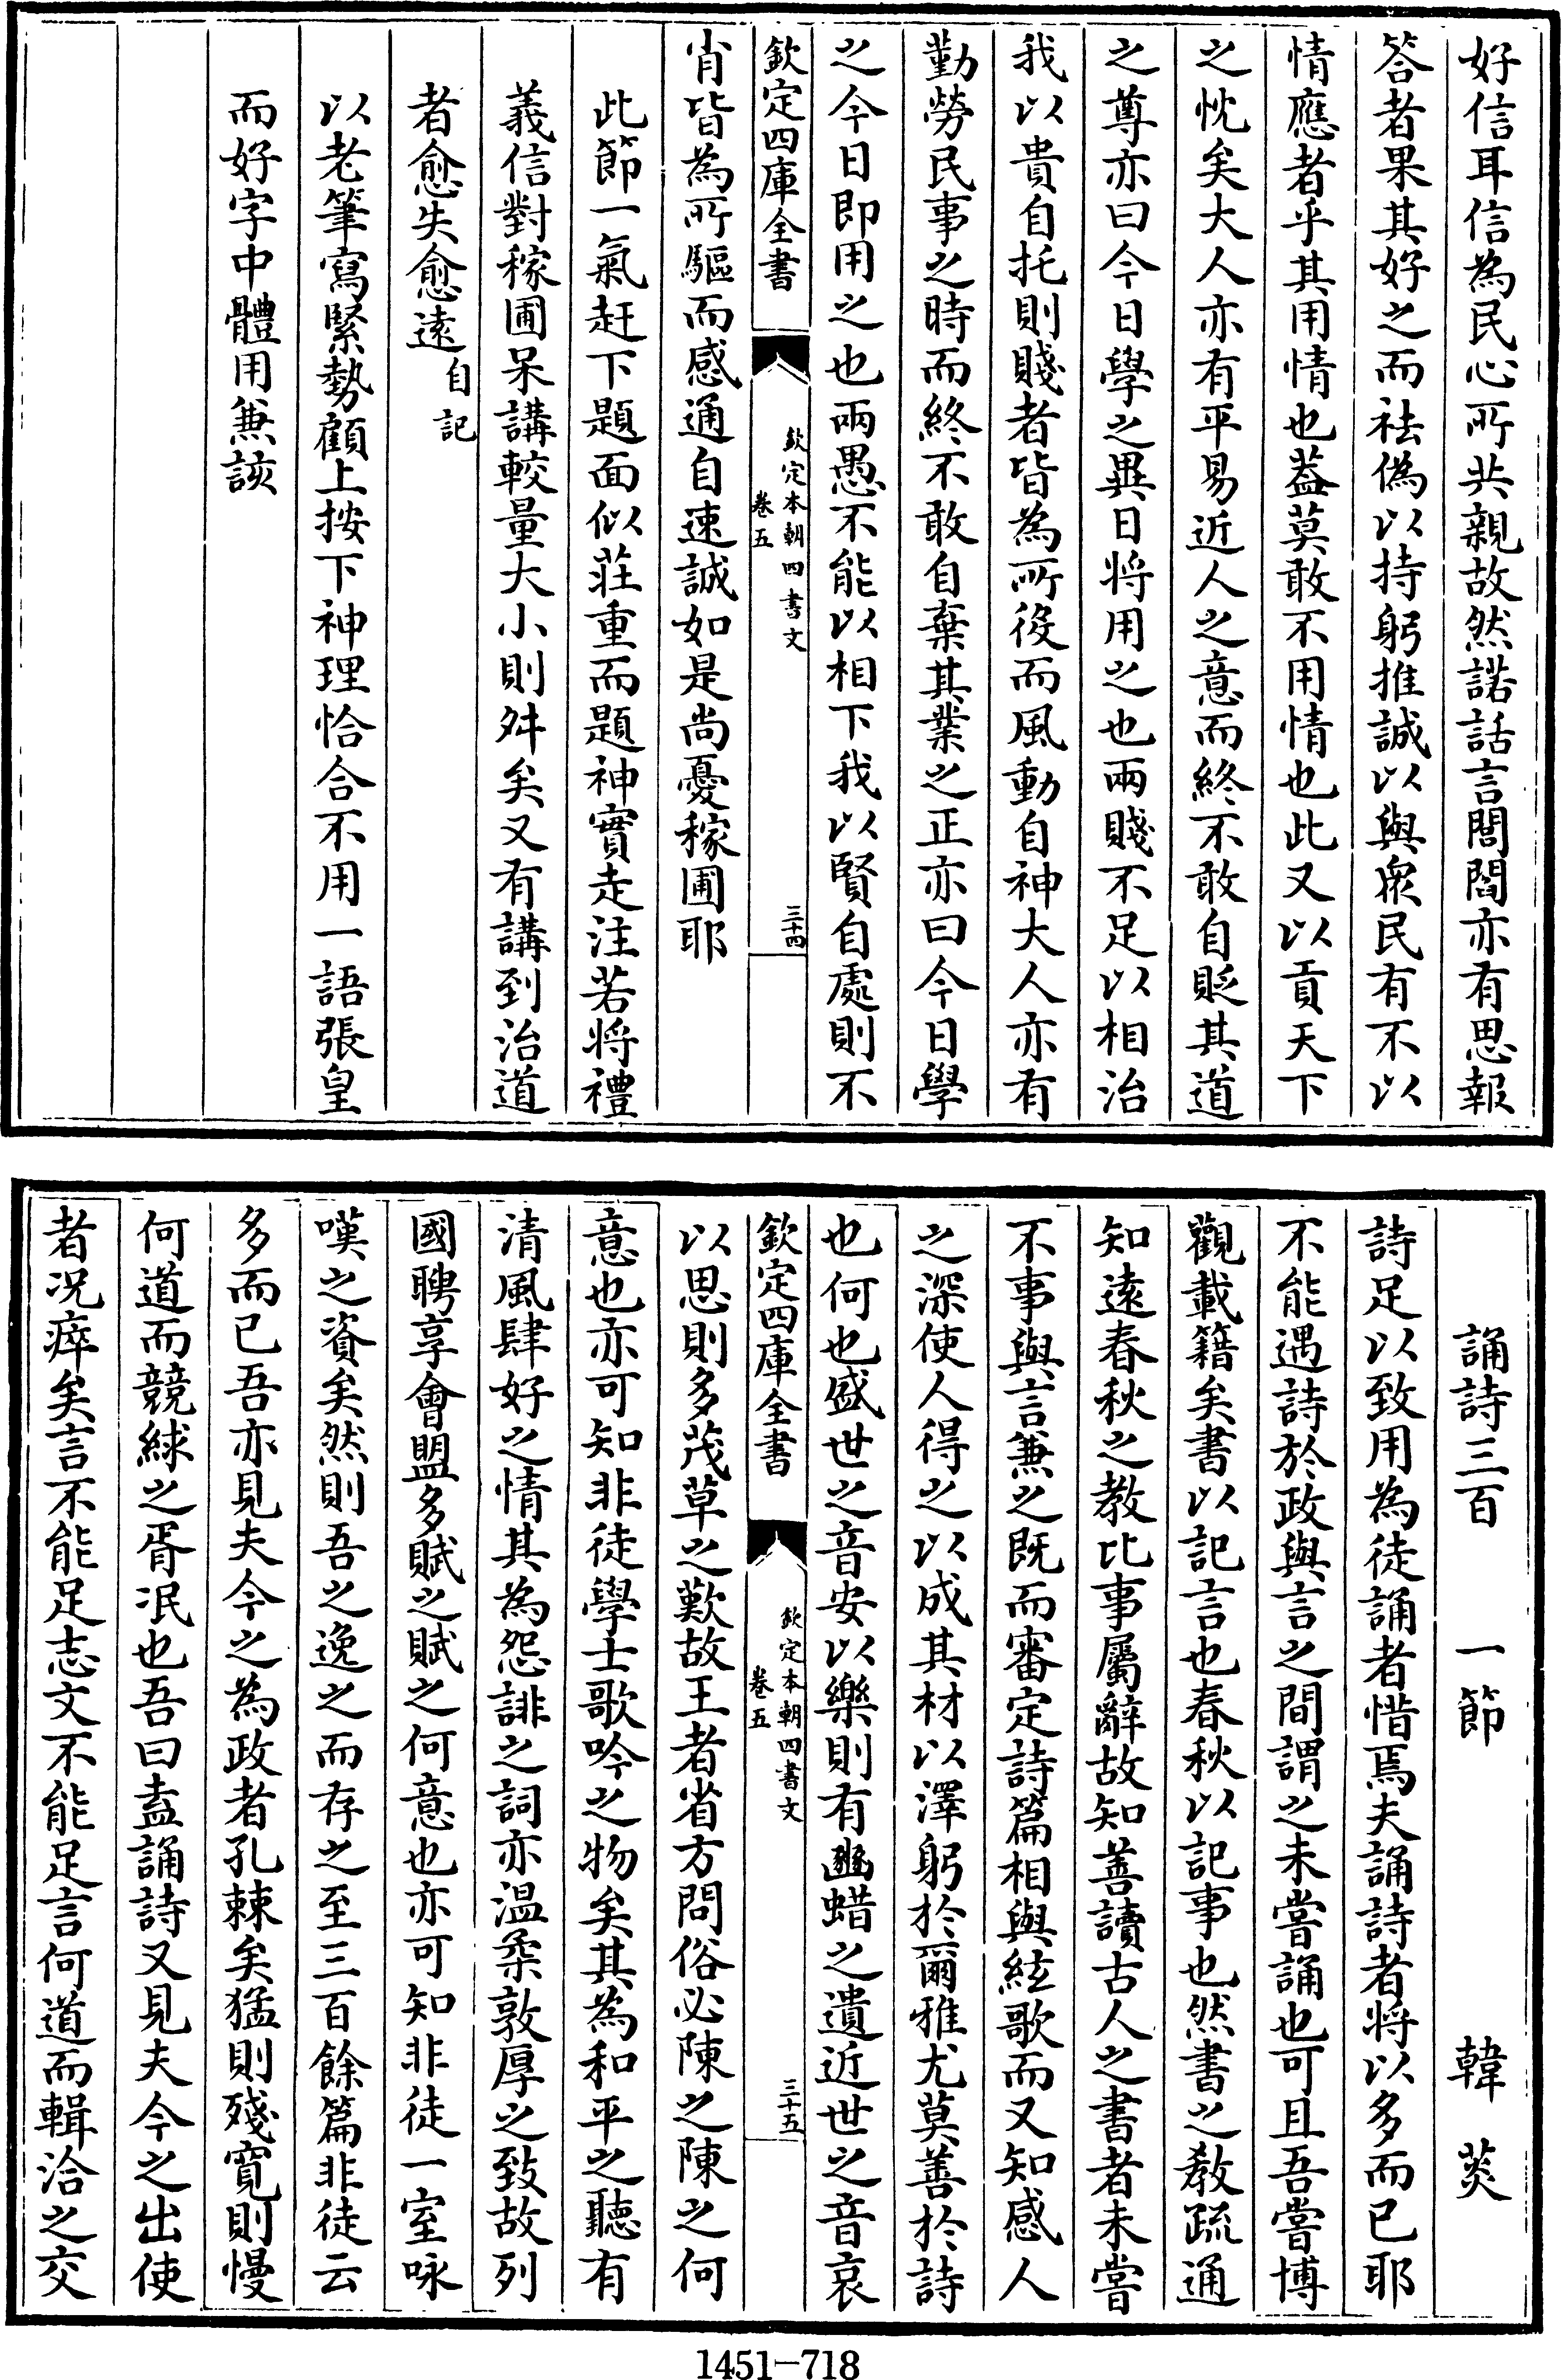 好信耳信為民心所共親故然諾話言閭閻亦有思報
答者果其好之而祛偽以持躬推誠以與衆民有不以
情應者乎其用情也葢莫敢不用情也此又以貢天下
之忱矣大人亦有平易近人之意而終不敢自貶其道
之尊亦曰今日學之異日将用之也兩賤不足以相治
我以貴自托則賤者皆為所役而風動自神大人亦有
勤勞民事之時而終不敢自棄其業之正亦曰今日學
之今日即用之也兩愚不能以相下我以賢自處則不
欽定四庫全書
欽定本朝四書文
卷五
三十四
肖皆為所驅而感通自速誠如是尚憂稼圃耶
此節一氣赶下題面似莊重而題神實走注若将禮
義信對稼圃呆講較量大小則舛矣又有講到治道
者愈失愈遠自記
以老筆寫緊勢顧上按下神理恰合不用一語張皇
而好字中體用兼該
誦詩三百 一節 韓菼
詩足以致用為徒誦者惜焉夫誦詩者將以多而已耶
不能遇詩於政與言之間謂之未嘗誦也可且吾嘗博
觀載籍矣書以記言也春秋以記事也然書之教疏通
知遠春秋之教比事屬辭故知善讀古人之書者未嘗
不事與言兼之既而審定詩篇相與絃歌而又知感人
之深使人得之以成其材以澤躬於爾雅尤莫善於詩
也何也盛世之音安以樂則有豳蜡之遺近世之音哀
欽定四庫全書
欽定本朝四書文
卷五
三十五
以思則多茂草之歎故王者省方問俗必陳之陳之何
意也亦可知非徒學士歌吟之物矣其為和平之聽有
清風肆好之情其為怨誹之詞亦温柔敦厚之致故列
國聘享會盟多賦之賦之何意也亦可知非徒一室咏
嘆之資矣然則吾之逸之而存之至三百餘篇非徒云
多而已吾亦見夫今之為政者孔棘矣猛則殘寬則慢
何道而競絿之胥泯也吾曰盍誦詩又見夫今之出使
者况瘁矣言不能足志文不能足言何道而輯洽之交
1451-718